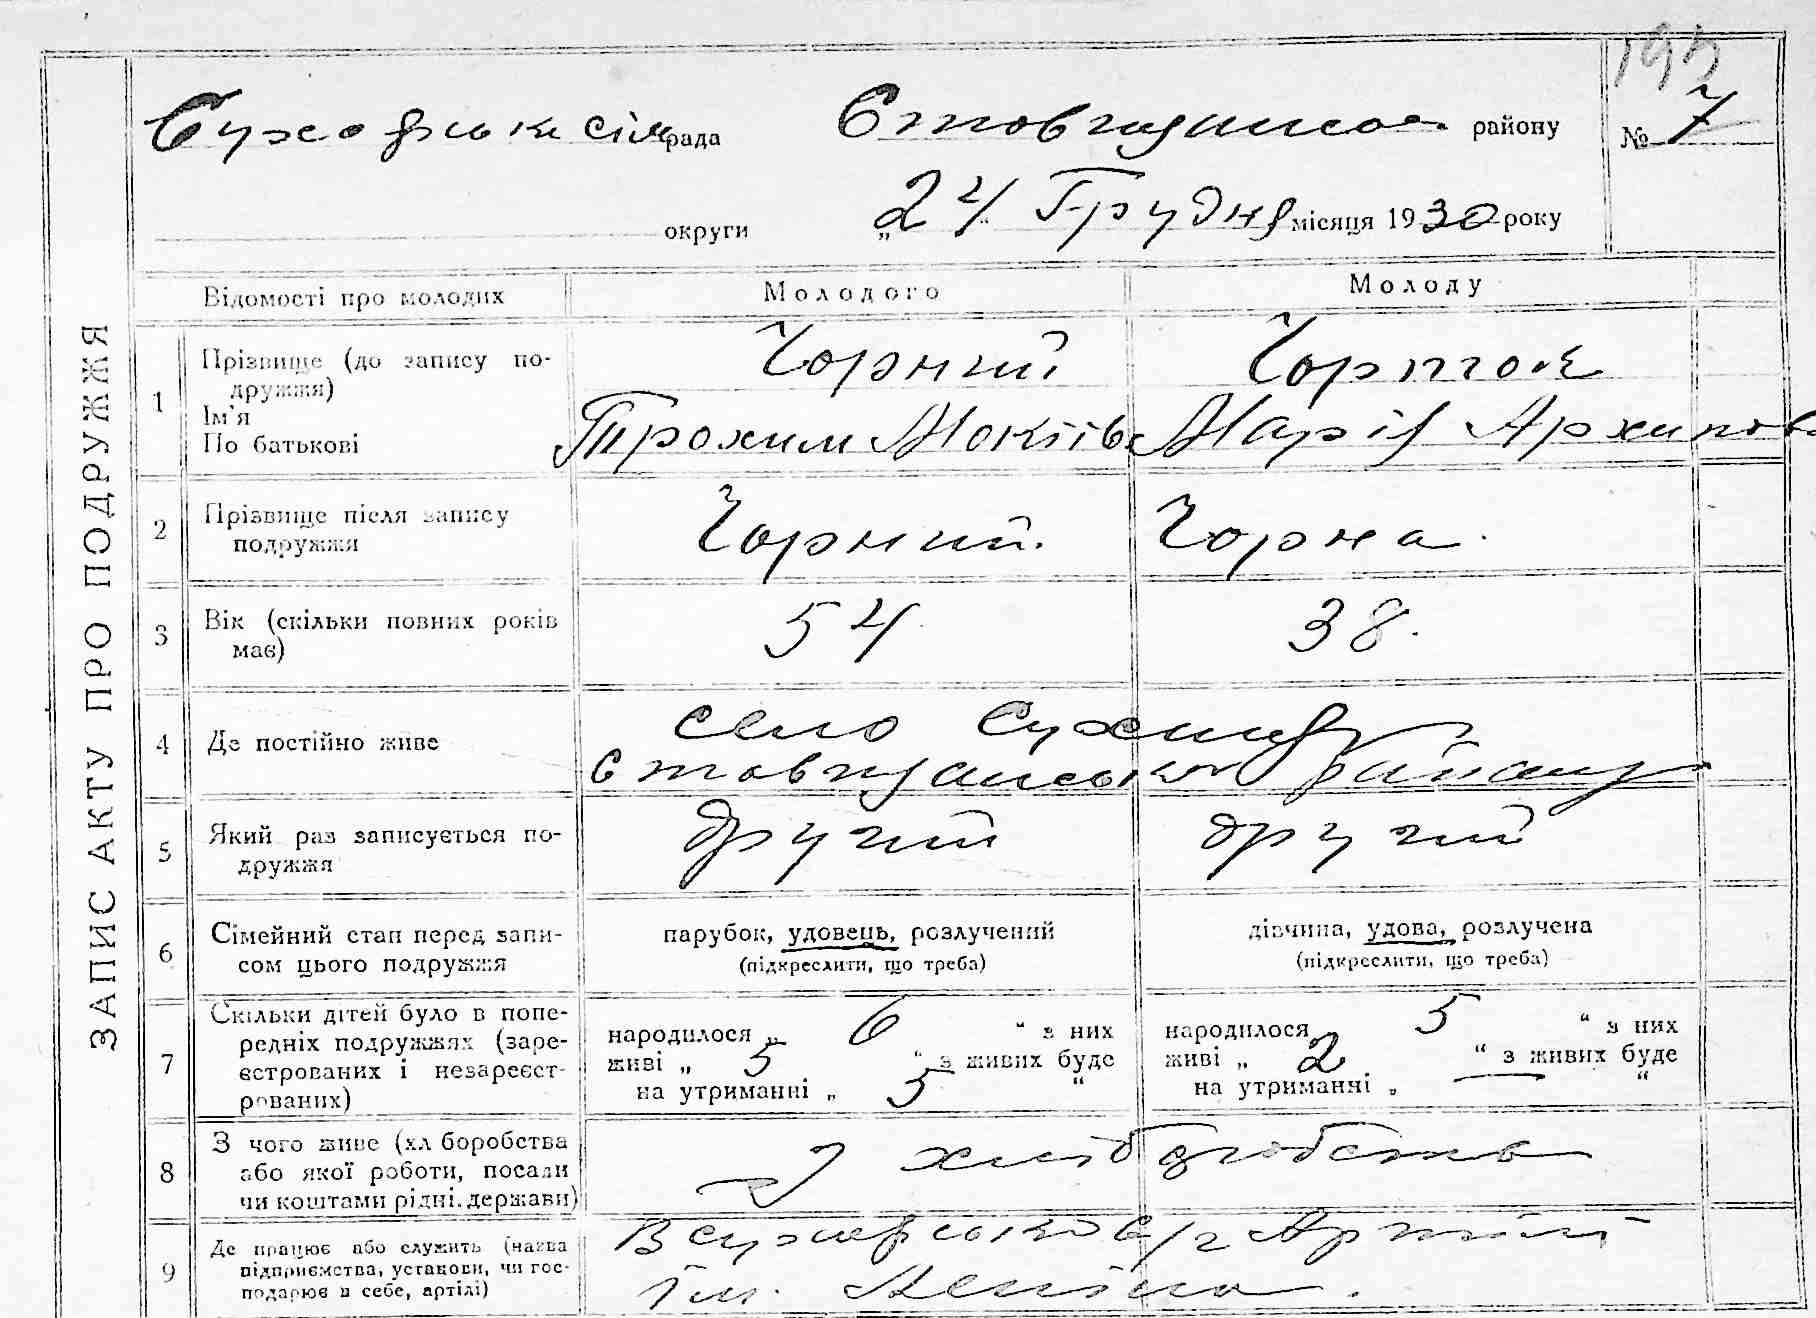 197
сільрада району № 7
округи „24 Грудня місяця 1930 року
ЗАПИС АКТУ ПРО ПОДРУЖЖЯ
Відомості про молодих Молодого Молоду
1 Прізвище (до запису по-
дружжя)
Ім'я
По батькові
Чорний
Трохим Мокіїв
Марія Архипова
2 Прізвище після запису
подружжя
Чорний. Чорна.
3 Вік (скільки повних років
має)
54. 38.
4 Де постійно живе
село
району
5 Який раз записується по-
дружжя
другий другий
6 Сімейний стан перед запи-
сом цього подружжя
парубок, удовець, розлучений
(підкреслити, що треба)
дівчина, удова, розлучена
(підкреслити, що треба)
7 Скільки дітей було в попе-
редніх подружжях (заре-
єстрованих і незареєст-
рованих)
народилося „ 6 “ з них
живі „ 5 “ з живих буде
на утриманні „ 5 “
народилося 5 “ з них
живі „ 2 “ з живих буде
на утриманні „ — “
8 З чого живе (хліборобства
або якої роботи, посади
чи коштами рідні, держави)
З хліборобства
9 Де працює або служить (назва
підприємства, установи, чи гос-
подарює в себе, артілі)
В с/г Артілі
ім. Леніна.